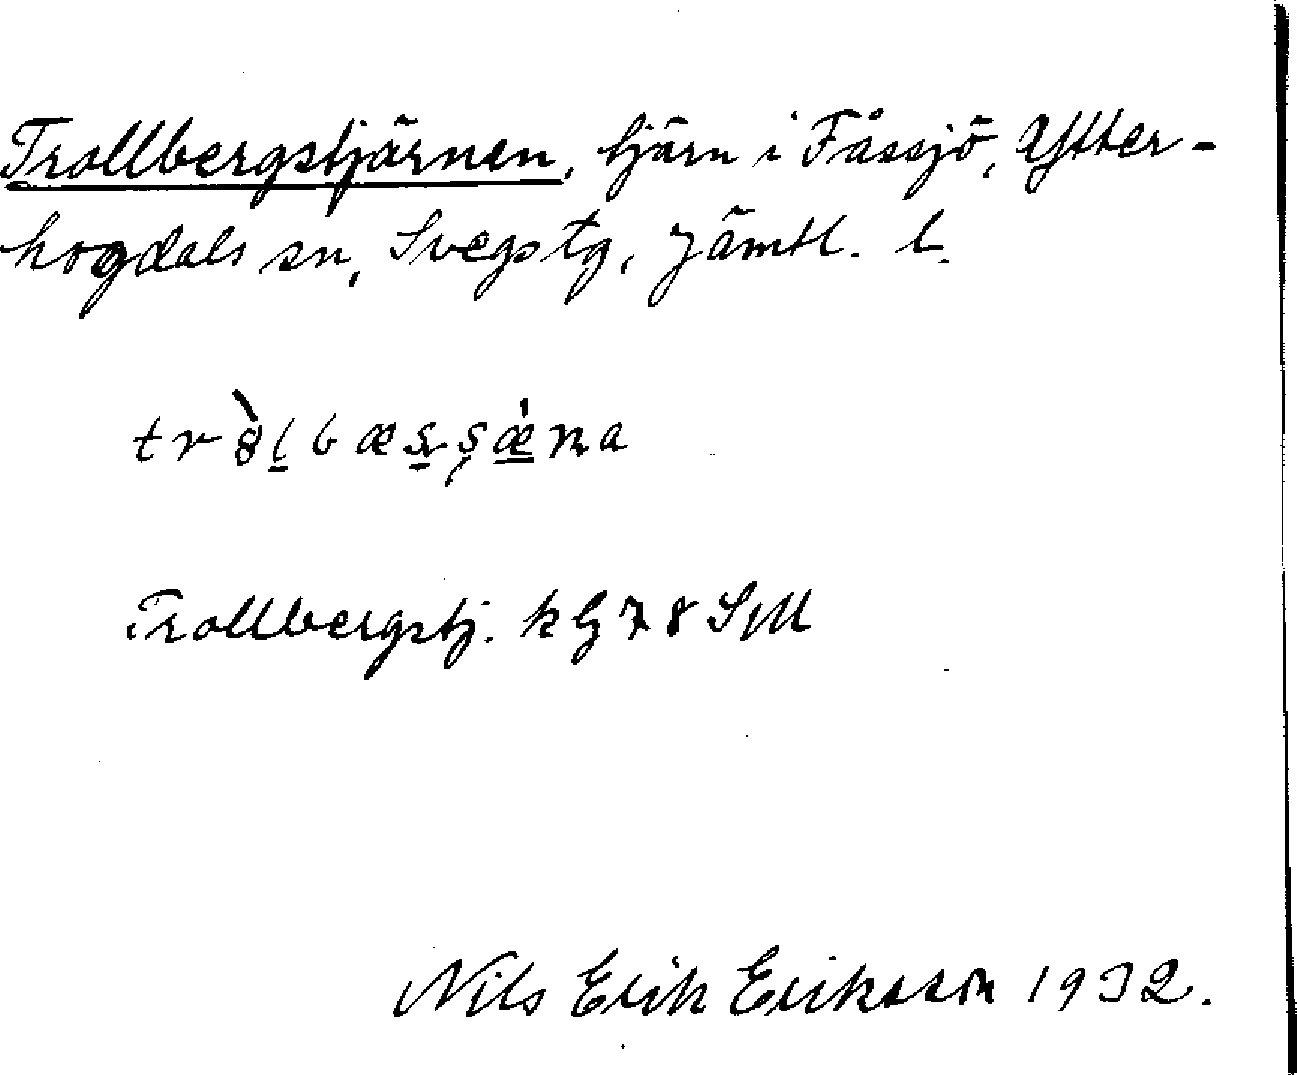 Trollbergstjärnen, tjärn i Fåssjö, Ytter-
hogdals sn, Svegs tg, Jämtl. l.
Trollbergstj. k bl 78 SV
Nils Erik Eriksson 1932.